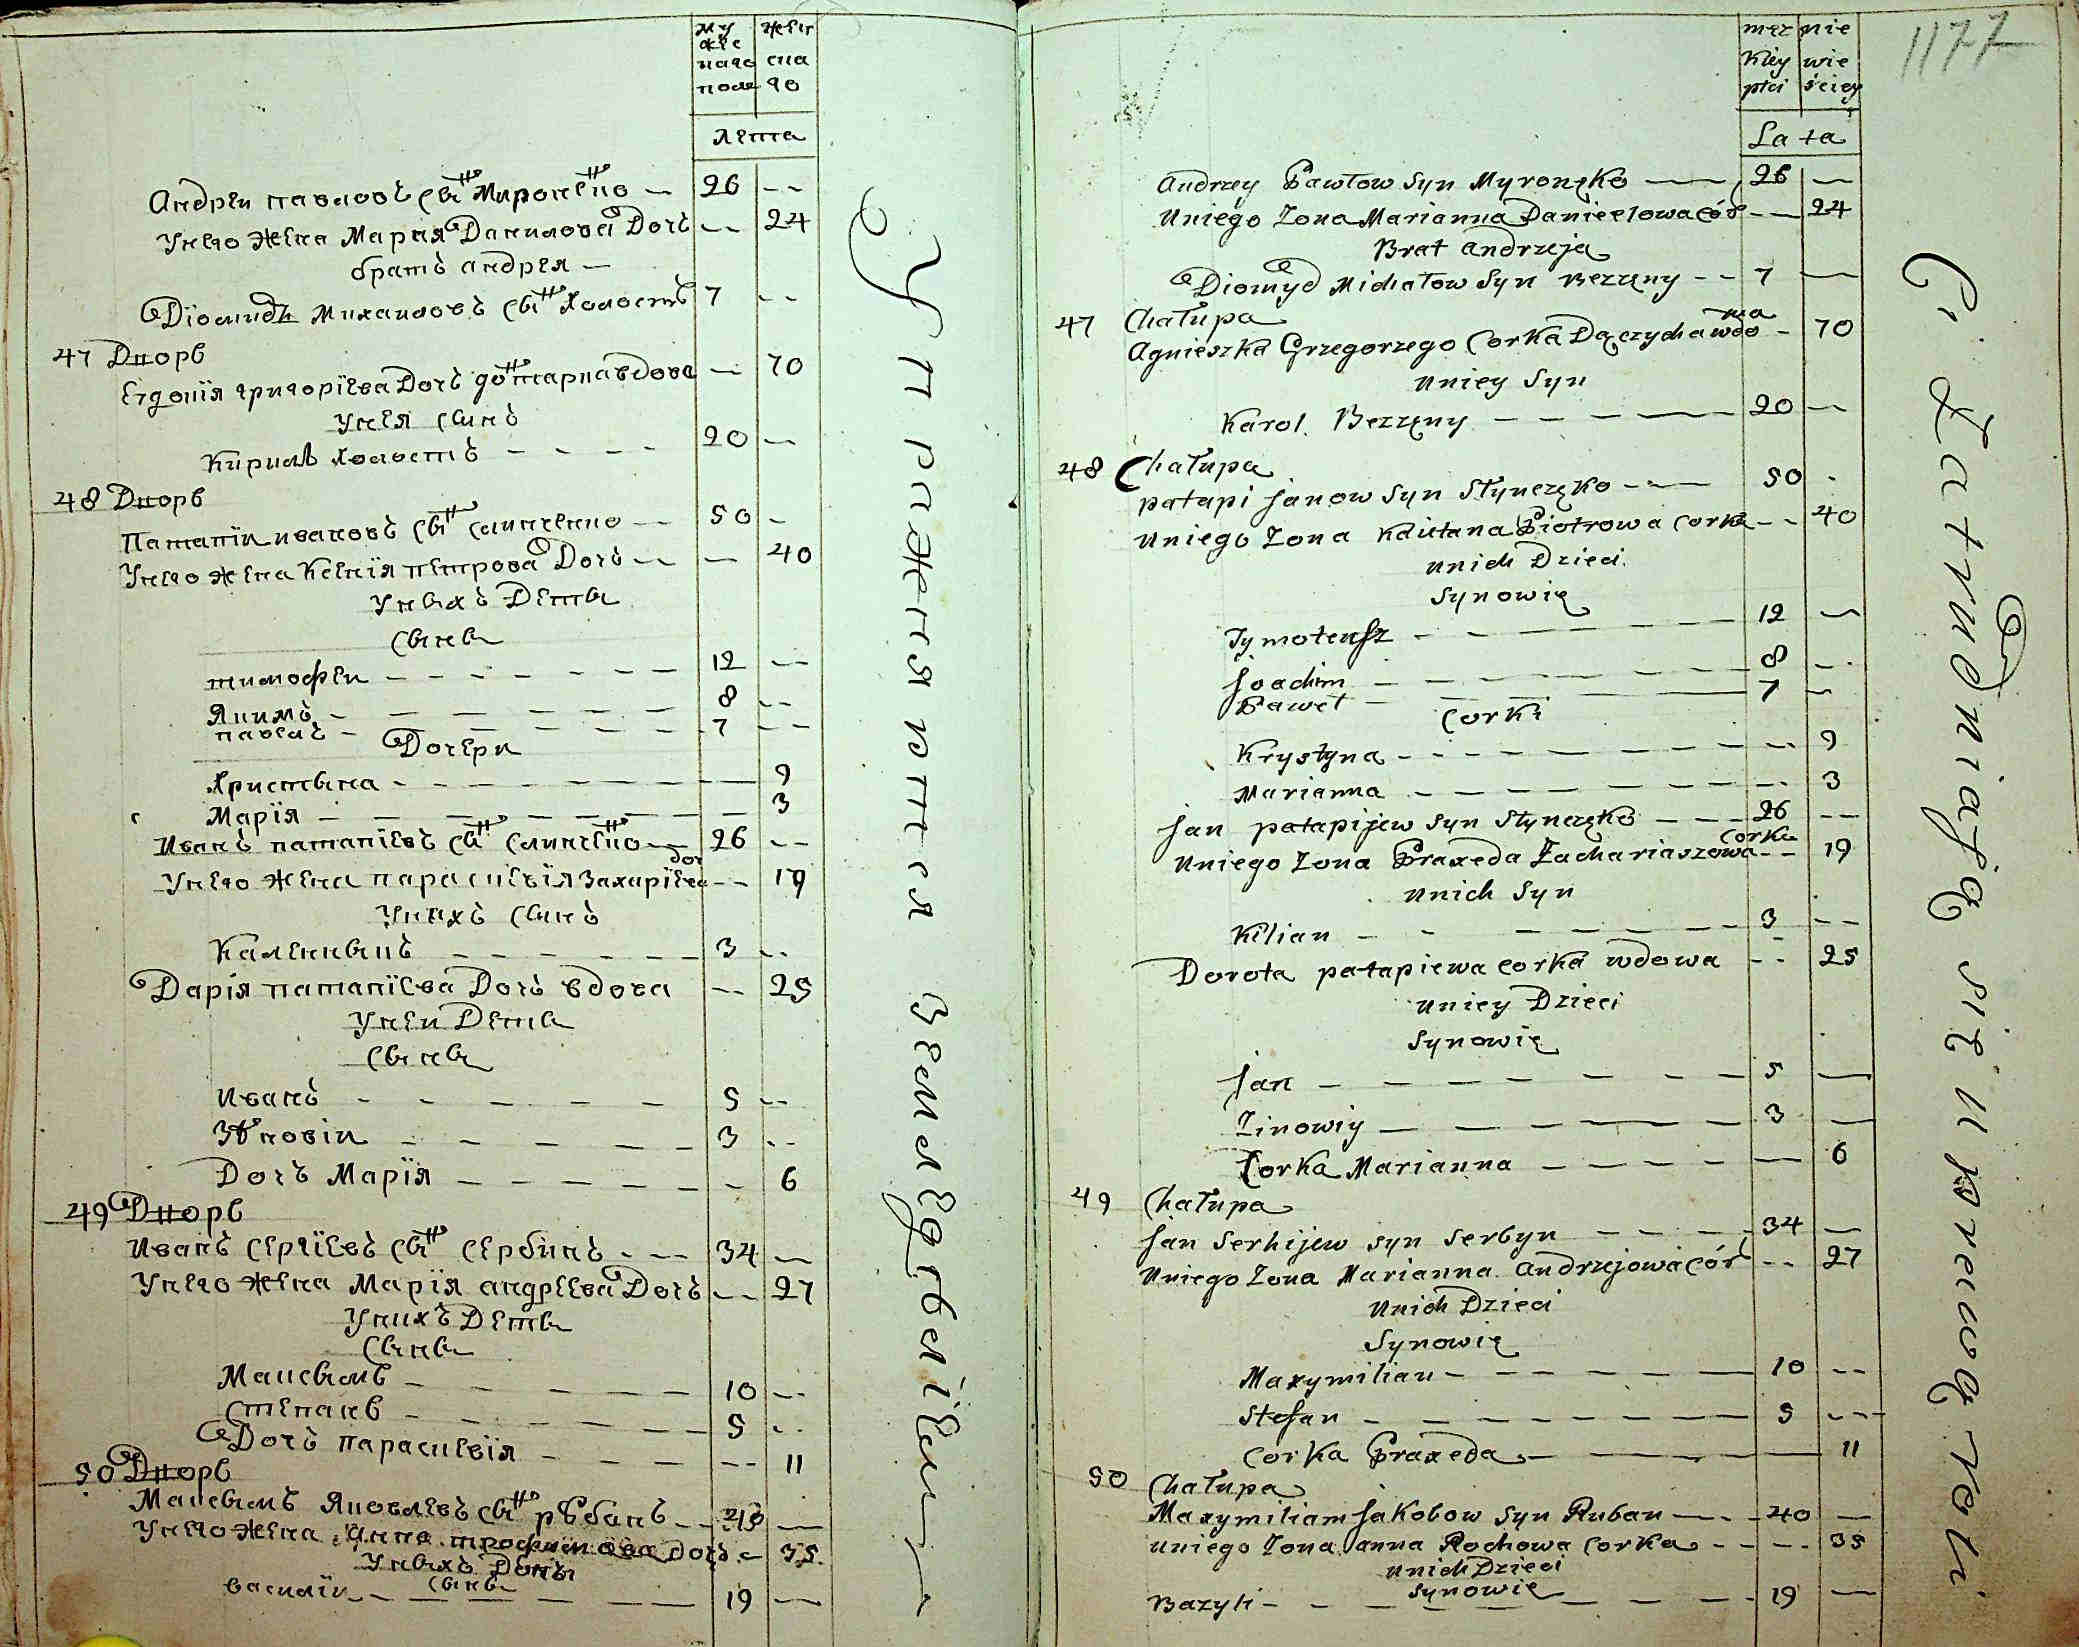 му
жес
каго
пола
женс
ска
го
лѣта
Андреи павловъ сынъ Мироненко — 26 --
У него жена Мария Данилова Дочь -- 24
братъ андрея —
Диомидъ Михаиловъ сынъ Холостъ 7 --
47 Дворъ
григориева Дочь вдова — 70
У нея сынъ
Кирилъ холостъ - - - - 20 —
48 Дворъ
Патапии ивановъ сынъ слинченко -- 50 -
У него жена Ксения петрова Дочь -- — 40
У ныхъ Дети
сыны
тимофеи - - - - - - 12 —
Якимъ - - - - - - 8 --
павелъ - - - - - - 7 --
Дочери
Христына - - - - - - 9
Марїя - - - - - - 3
Иванъ патапїевъ сынъ слинченко — 26 --
У него жена параскевїя Захарїева доч -- 19
У нихъ сынъ
Каленикъ - - - - - - 3 --
Дарїя патапїева Дочь вдова -- 25
У неи Дети
сыны
Иванъ - - - - - 5 --
Зѣновіи - - - - - 3 --
Дочь Марїя - - - - - - 6
49 Дворъ
Иванъ сергїевъ сынъ сербинъ - -- 34 —
У него жена Марїя андреева Дочь -- 27
У нихъ Дети
сыны
Максымъ - - - - - 10 --
степанъ - - - - - 5 --
Дочь параскевїя - - - - -- 11
50 Дворъ
Максымъ Яковлевъ сынъ рубанъ -- 40 —
У него жена Анна трофимова дочь - 35
У ныхъ Дети
сыны
василїи - - - - - 19 —
Упражняются земледѣлїем
męz
kiey
płci
nie
wie
ściey
La ta
1177
Andrzey Pawłow Syn Myronęko — 26 —
Uniego Zona Marianna Daniełowa cór -- 24
Brat Andrzeja
Diomyd Michałow Syn Bezzęny -- 7 —
47 Chałupa
Agnieszka Grzegorzego Corka wdowa - 70
Uniey Syn
Karol Bezzęny - - - - 20 --
48 Chałupa
patapi Janow Syn Słynczęko - — 50 -
Uniego Zona Piotrowa Corka -- 40
Unich Dzieci
Synowię
Tymoteusz - - - - - 12 —
Joachim - - - - - 8 --
Paweł - - - - - 7 —
Corki
Krystyna - - - - - - - 9
Marianna - - - - - - - 3
Jan patapijew Syn Słynczęko - - - 26 --
Uniego Zona Praxeda Zachariaszowa Corka -- 19
Unich Syn
Kilian - - - - - - 3 --
Dorota patapiewa corka wdowa -- 25
Uniey Dzieci
Synowię
Jan - - - - - - 5 —
Zinowiy - - - - - - 3 —
Corka Marianna - - - - — 6
49 Chałupa
Jan Serhijew Syn Serbyn - - - - 34 —
Uniego Zona Marianna Andrzejowa cór -- 27
Unich Dzieci
Synowię
Maxymilian - - - - - 10 --
Stefan - - - - - - 5 ---
Corka Praxeda - - - — 11
50 Chałupa
Maxymiliam Jakobow Syn Ruban — - 40 —
Uniego Zona Anna Rochowa Corka - - - 35
Unich Dzieci
Synowię
Bazyli - - - - - - 19 —
Zatrudniają się uprawą roli